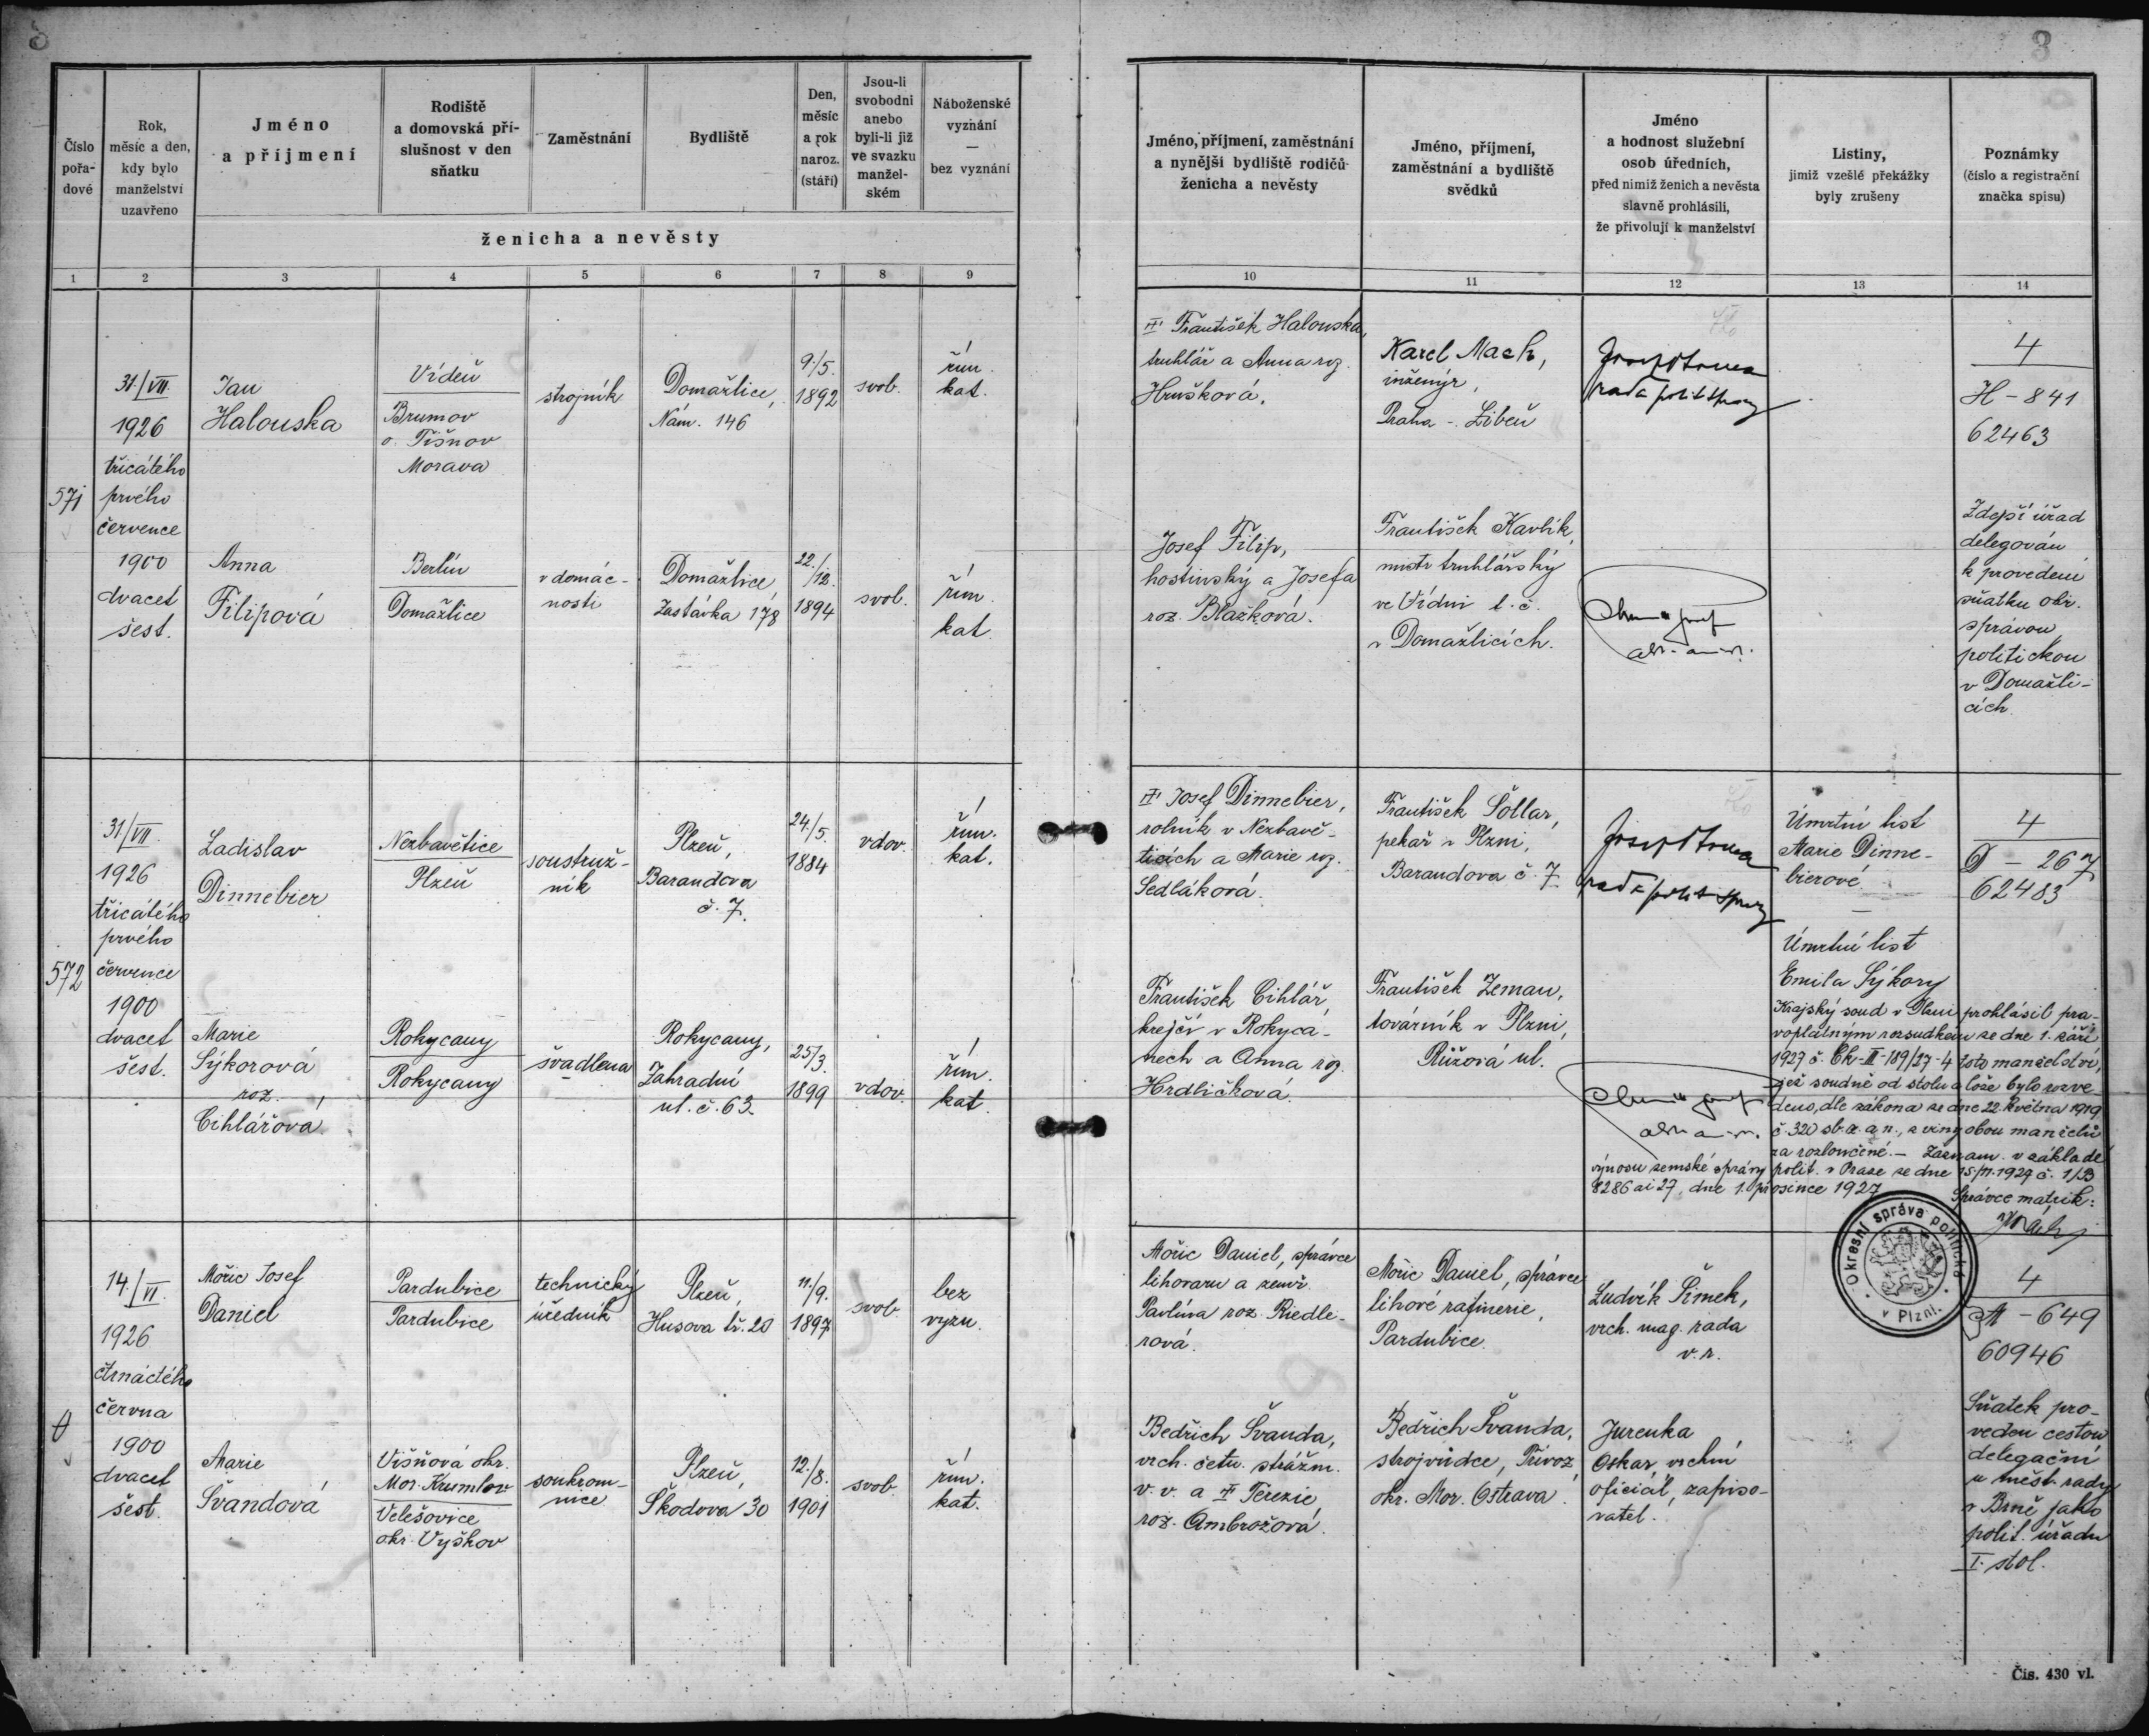 8
Číslo
pořa-
dové
Rok,
měsíc a den,
kdy bylo
manželství
uzavřeno
Jméno
a příjmení
Rodiště
a domovská pří-
slušnost v den
sňatku
Zaměstnání
Bydliště
Den,
měsíc
a rok
naroz.
(stáří)
Jsou-li
svobodni
anebo
byli-li již
ve svazku
manžel-
ském
Náboženské
vyznání
—
bez vyznání
ženicha a nevěsty
Jméno, příjmení, zaměstnání
a nynější bydliště rodičů
ženicha a nevěsty
Jméno, příjmení,
zaměstnání a bydliště
svědků
Jméno
a hodnost služební
osob úředních,
před nimiž ženich a nevěsta
slavně prohlásili,
že přivolují k manželství
Listiny,
jimiž vzešlé překážky
byly zrušeny
Poznámky
(číslo a registrační
značka spisu)
1 2 3 4 5 6 7 8 9 10 11 12 13 14
571
31./VII.
1926
třicátého
prvého
července
1900
dvacet
šest.
Jan
Halouska
Vídeň
Brumov
o. Tišnov
Morava
strojník
Domažlice,
Nám. 146
9./5.
1892
svob.
řím.
kat.
Anna
Filipová
Berlín
Domažlice
v domác-
nosti
Domažlice,
Zastávka 178
22./12.
1894
svob.
řím.
kat.
František Halouska,
truhlář a Anna roz.
Hrušková.
Josef Filip,
hostinský a Josefa
roz. Blažková.
Karel Mach,
inženýr,
Praha - Libeň
František Kavlík,
mistr truhlářský
ve Vídni t. č.
v Domažlicích.
rada polit správy
4
H - 841
62463
Zdejší úřad
delegován
k provedení
sňatku okr.
správou
politickou
v Domažli-
cích.
572
31/VII.
1926
třicátého
prvého
července
1900
dvacet
šest.
Ladislav
Dinnebier
Nezbavětice
Plzeň
soustruž-
ník
Plzeň,
Barandova
č. 7.
24./5.
1884
vdov.
řím.
kat.
Marie
Sýkorová
roz.
Cihlářová.
Rokycany
Rokycany
švadlena
Rokycany,
Zahradní
ul. č. 63.
25/3.
1899
vdov.
řím.
kat.
Josef Dinnebier,
rolník v Nezbavě-
ticích a Marie roz.
Sedláková.
František Cihlář,
krejčí v Rokyca-
nech a Anna roz.
Hrdličková.
František Šollar,
pekař v Plzni,
Barandova č. 7.
František Zeman,
továrník v Plzni,
Růžová ul.
rada polit správy
Úmrtní list
Marie Dinne-
bierové.
—
Úmrtní list
Emila Sýkory
4
D - 267
62483
Krajský soud v Plzni prohlásil pra-
voplatným rozsudkem ze dne 1. září
1927 č. Ck-II-189/27-4 toto manželství,
jež soudně od stolu a lože bylo rozve-
deno, dle zákona ze dne 22. května 1919
č. 320 sb. z. a n., z viny obou manželů
za rozloučené. - Záznam. v základě
výnosu zemské správy polit. v Praze ze dne 15/11.1927 č. 1/B
8286 ai 27, dne 1. prosince 1927
Správce matrik:
Okresní správa politická
v Plzni.
14./VI.
1926
čtrnáctého
června
1900
dvacet
šest.
Mořic Josef
Daniel
Pardubice
Pardubice
technický
úředník
Plzeň,
Husova tř. 20
11./9.
1897
svob.
bez
vyzn.
Marie
Švandová
Višňová okr.
Mor. Krumlov
Velešovice
okr. Vyškov
soukrom-
nice
Plzeň,
Škodova 30
12./8.
1901
svob.
řím.
kat.
Mořic Daniel, správce
lihovaru a zemř.
Pavlína roz. Riedle-
rová.
Bedřich Švanda,
vrch. četn. strážm.
v. v. a Terezie,
roz. Ambrožová.
Mořic Daniel, správce
lihové rafinerie,
Pardubice.
Bedřich Švanda,
strojvůdce, Přívoz,
okr. Mor. Ostrava.
Ludvík Šimek,
vrch. mag. rada
v. r.
Jurenka
Oskar, vrchní
oficiál, zapiso-
vatel.
4
M - 649
60946
Sňatek pro-
veden cestou
delegační
u měst. rady
v Brně jako
polit. úřadu
I. stol.
Čís. 430 vl.